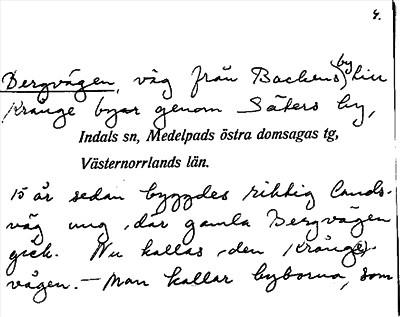 4.
Bergvägen, väg från Backens by till
Krånge byar genom Säters by,
Indals sn, Medelpads östra domsagas tg,
Västernorrlands län.
15 år sedan byggdes riktig lands-
väg ung. där gamla Bergvägen
gick. Nu kallas den Krånge(s)-
vägen. — Man kallar byborna, som